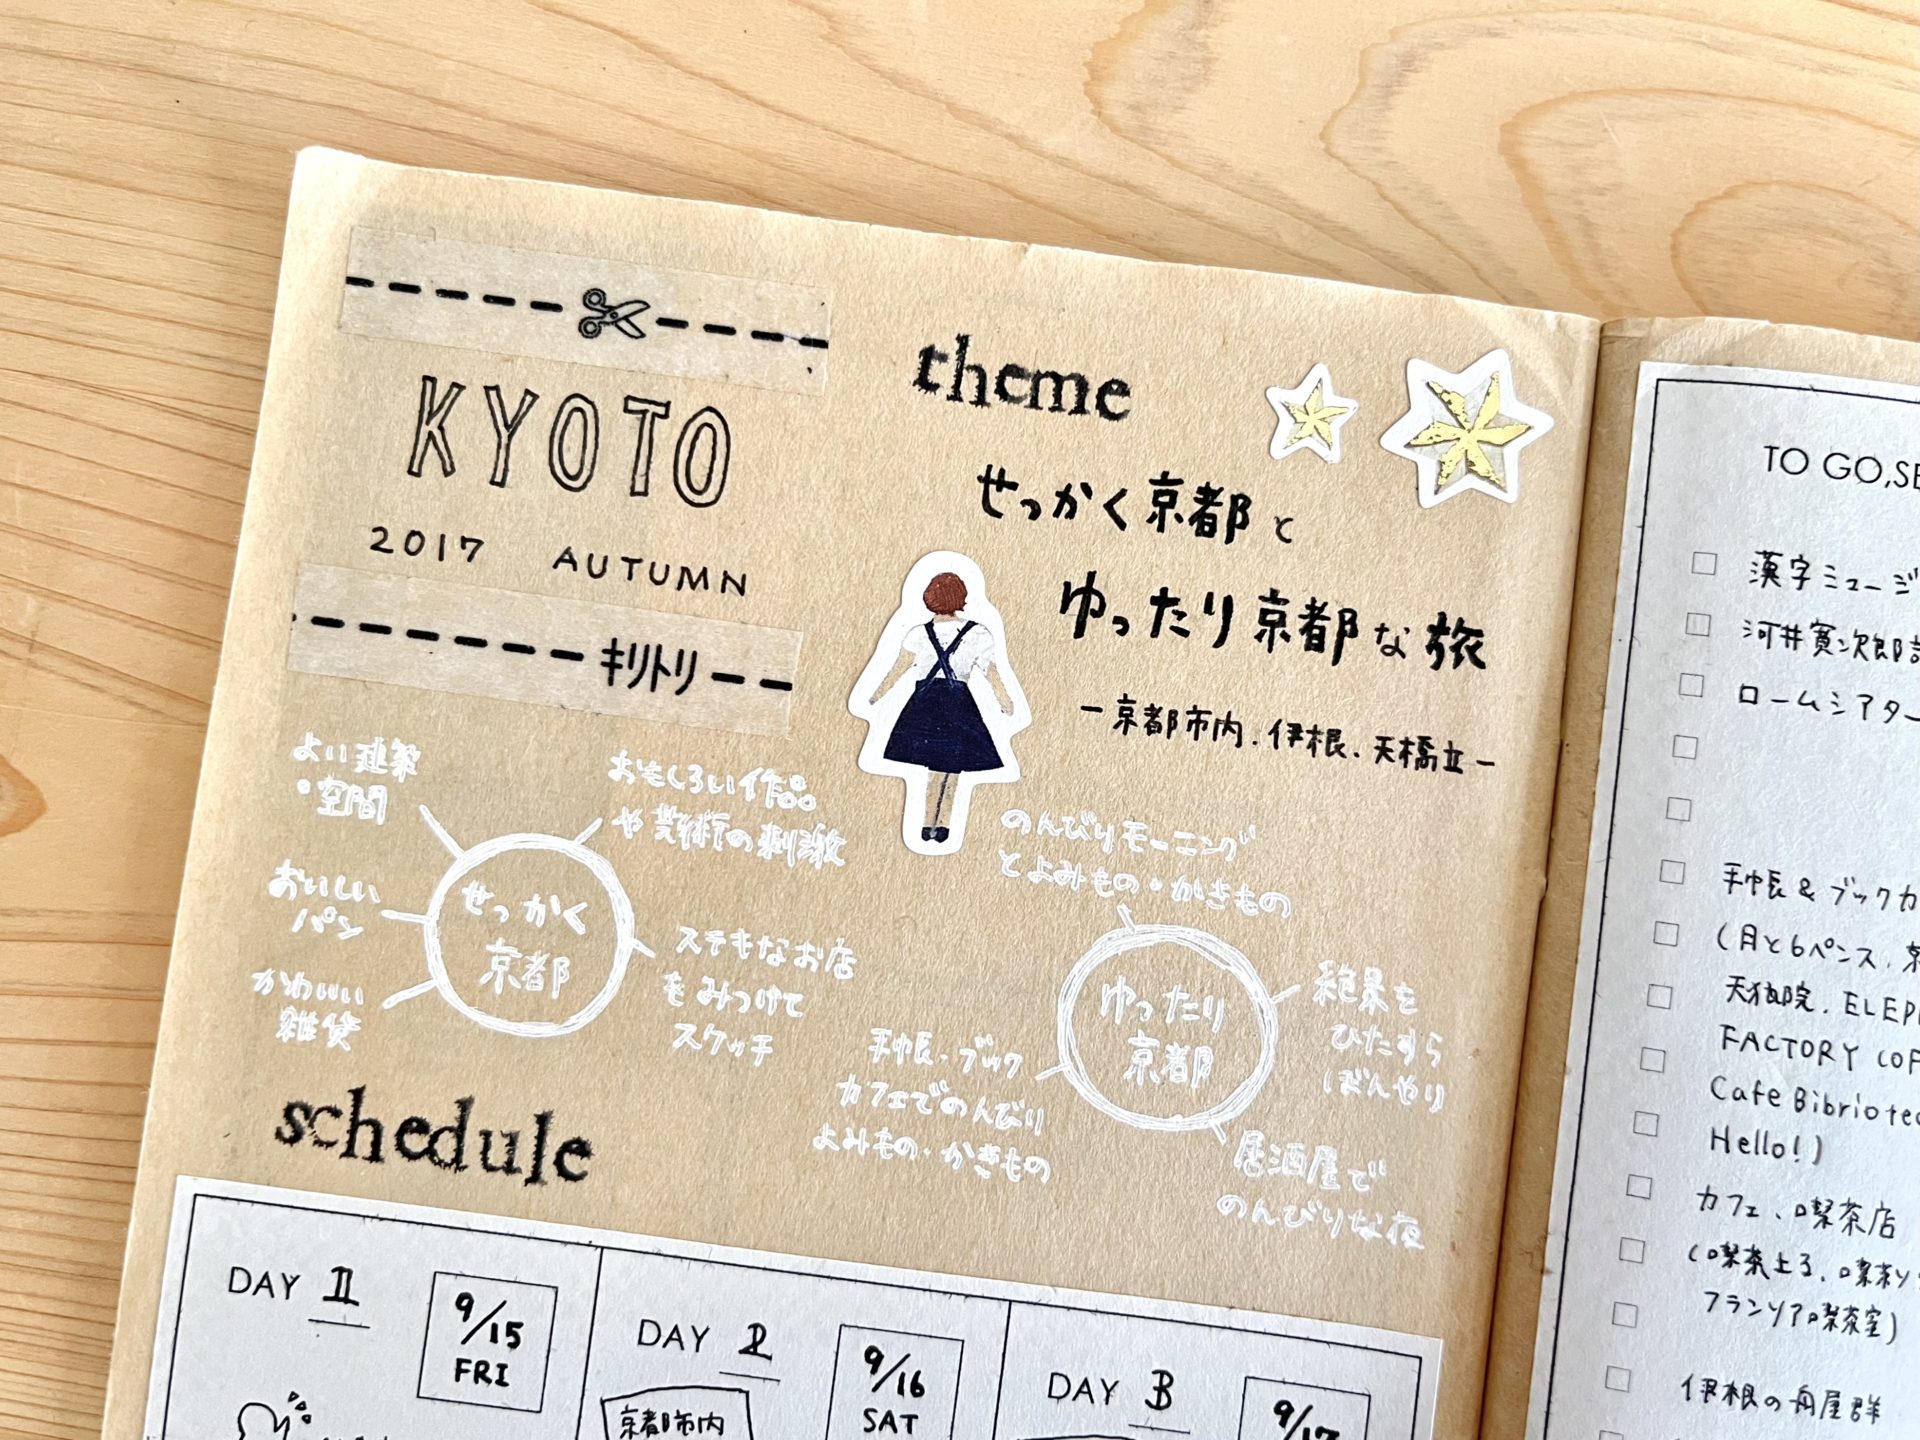 キリトリ
KYOTO
2017 AUTUMN
theme
せっかく京都と
ゆったり京都な旅
ー京都市内.伊根.天橋立ー
よい建築
・空間
おもしろい作品
や芸術の刺激
おいしい
パン
せっかく
京都
かわいい
雑貨
ステキなお店
をみつけて
スケッチ
のんびりモーニング
とよみもの・かきもの
ゆったり
京都
絶景を
ひたすら
ぼんやり
手帳・ブック
カフェでのんびり
よみもの・かきもの
居酒屋で
のんびりな夜
schedule
DAY
9/15
FRI
DAY
9/16
SAT
京都市内
DAY
9/17
TO GO,SE
漢字ミュージ
河井寛次郎
ロームシアター
手帳&ブックカ
(月と6ペンス.
天狼院.ELEP
FACTORY COF
Cafe Bibriotec
Hello!)
カフェ、喫茶店
(喫茶上る、喫茶ソ
フランソア喫茶室)
伊根の舟屋群